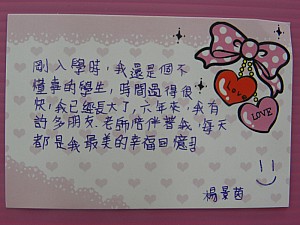 剛入學時，我還是個不
懂事的學生，時間過得很
快，我已經長大了，六年來，我有
許多朋友、老師陪伴著我，每天
都是我最美的幸福回憶
Love
LOVE
楊景茵